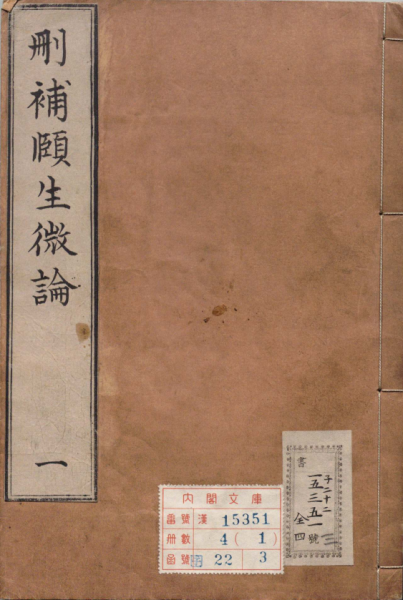 刪補頤生微論
一
内閣文庫
番號 漢 15351
冊數 4(1)
函號 22 3
書
子二十二
一五三五一號
全四